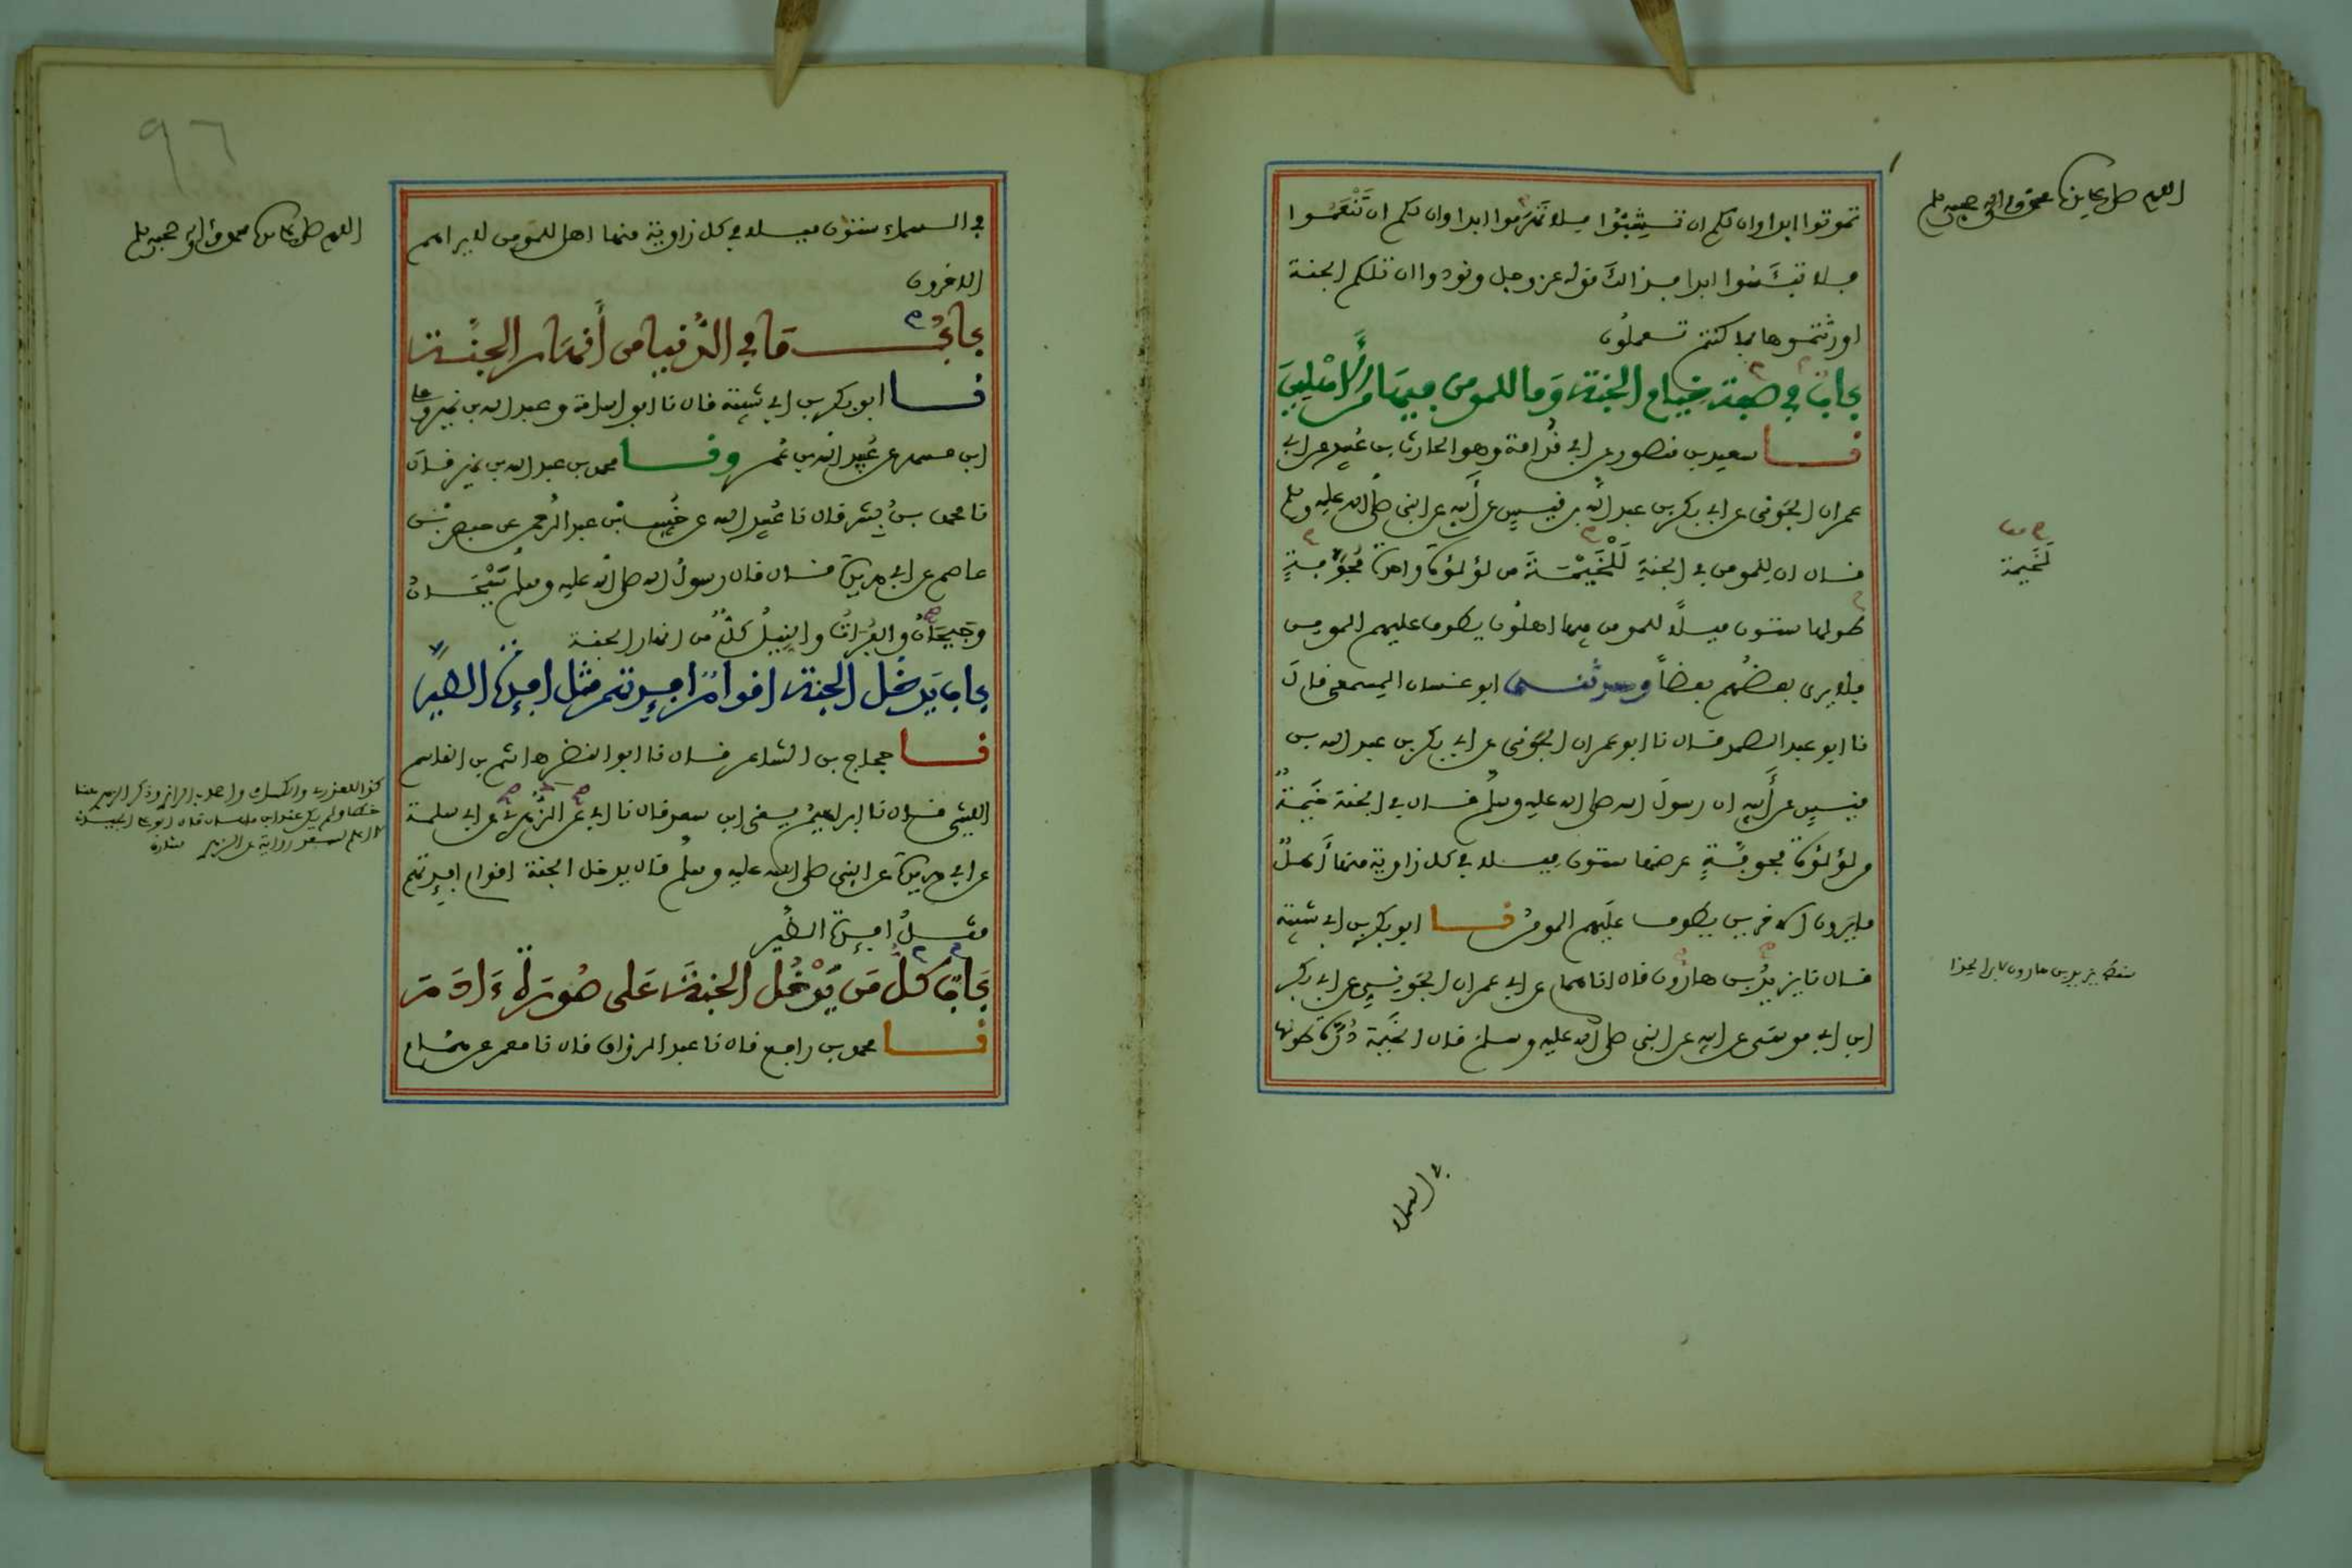 اللهم صل على سيدنا محمد وآله وصحبه وسلم
تموتوا ابدا وان لكم ان تشبوا فلا تهرموا ابدا وان لكم ان تنعموا
فلا تبئسوا ابدا فذالك قوله عز وجل ونودوا ان تلكم الجنة
اورثتموها بما كنتم تعملون
باب في صفة خيام الجنة وما للمومن فيها من الاهلين
نا سعيد بن منصور عن ابي قدامة وهو الحارث بن عبيد عن ابي
عمران الجوني عن ابي بكر بن عبد الله بن قيس عن أبيه عن النبي صلى الله عليه وسلم
قال ان للمومن في الجنة لَلْخَيْمَةَ من لؤلؤة واحدة مجوفة
طولها ستون ميلا للمومن فيها اهلون يطوف عليهم المومن
فلا يرى بعضهم بعضا وحدثني ابو غسان المسمعي قال
نا ابو عبد الصمد قال نا ابو عمران الجوني عن ابي بكر بن عبد الله بن
قيس عن أبيه ان رسول الله صلى الله عليه وسلم قال في الجنة خيمة
من لؤلؤة مجوفة عرضها ستون ميلا في كل زاوية منها أهل
ما يرون الاخرين يطوف عليهم المومن نا ابو بكر بن ابي شيبة
قال نا يزيد بن هارون قال انا همام عن ابي عمران الجوني عن ابي بكر
ابن ابي موسى عن ابيه عن النبي صلى الله عليه وسلم قال الخيمة درة طولها
لخيمة
في السماء
اللهم صل على سيدنا محمد وآله وصحبه وسلم
في السماء ستون ميلا في كل زاوية منها اهل للمومن لا يراهم
الاخرون
باب ما في الدنيا من أنهار الجنة
نا ابو بكر بن ابي شيبة قال نا ابو اسامة وعبد الله بن نمير وعلي
ابن مسهر عن عبيد الله بن عمر ونا محمد بن عبد الله بن نمير قال
نا محمد بن بشر قال نا عبيد الله عن خبيب بن عبد الرحمن عن حفص بن
عاصم عن ابي هريرة قال قال رسول الله صلى الله عليه وسلم سيحان
وجيحان والفرات والنيل كل من انهار الجنة
باب يدخل الجنة اقوام افئدتهم مثل افئدة الطير
نا حجاج بن الشاعر قال نا ابو النضر هاشم بن القاسم
الليثي قال نا ابراهيم يعني ابن سعد قال نا ابي عن الزهري عن ابي سلمة
عن ابي هريرة عن النبي صلى الله عليه وسلم قال يدخل الجنة اقوام افئدتهم
مثل افئدة الطير
باب كل من يدخل الجنة على صورة ءادم
نا محمد بن رافع قال نا عبد الرزاق قال نا معمر عن همام